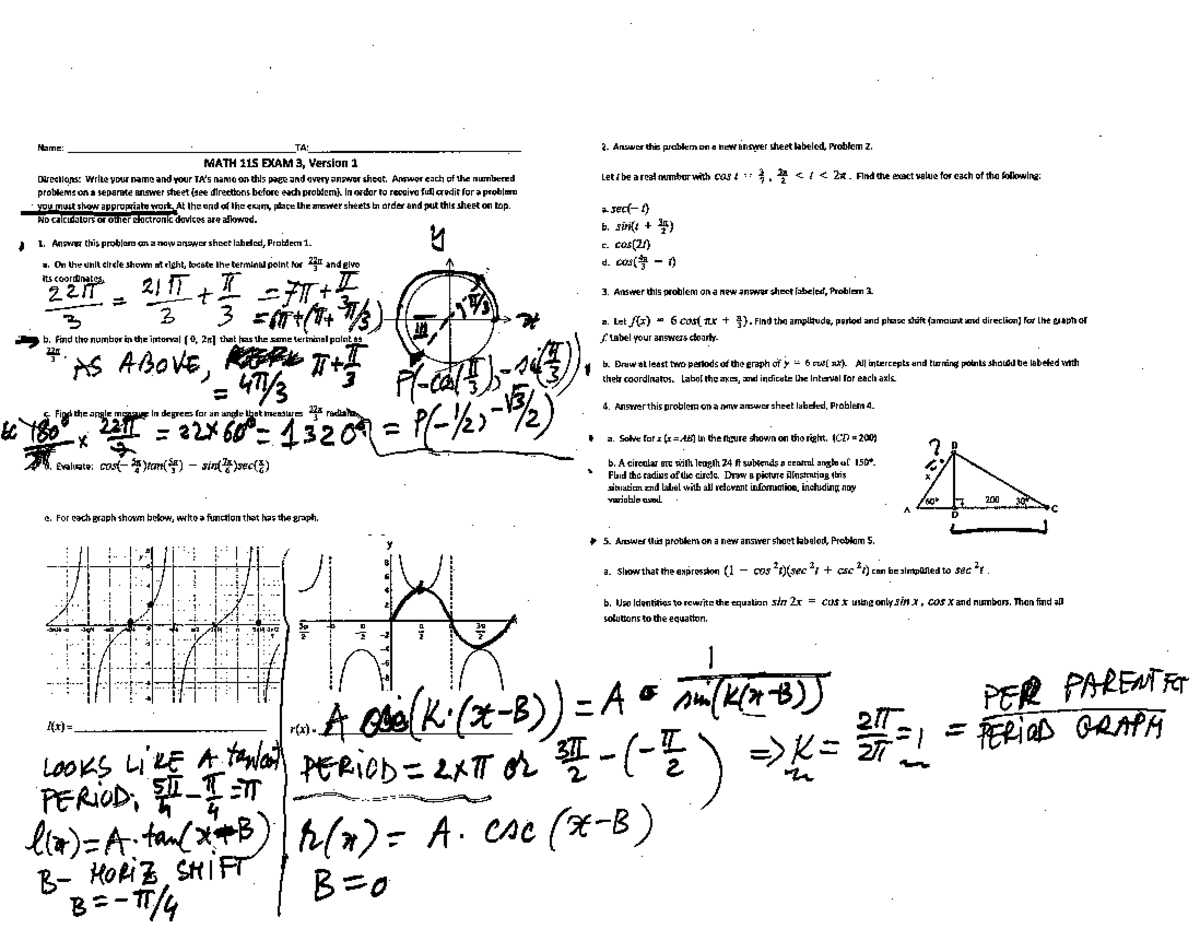 Name: ____ TA: ____
MATH 115 EXAM 3, Version 1
Directions: Write your name and your TA's name on this page and every answer sheet. Answer each of the numbered
problems on a separate answer sheet (see directions before each problem). In order to receive full credit for a problem
you must show appropriate work. At the end of the exam, place the answer sheets in order and put this sheet on top.
No calculators or other electronic devices are allowed.
1. Answer this problem on a new answer sheet labeled, Problem 1.
a. On the unit circle shown at right, locate the terminal point for 22π/3 and give
its coordinates.
22π/3 = 21π/3 + π/3 = 7π + π/3
= 6π + (π + π/3)
y
π/3
x
III
P(-cos(π/3), -sin(π/3))
b. Find the number in the interval [ 0, 2π] that has the same terminal point as
22π/3.
AS ABOVE, π + π/3
= 4π/3
= P(-1/2, -√3/2)
c. Find the angle measure in degrees for an angle that measures 22π/3 radians.
180°/π × 22π/3 = 22×60° = 1320°
d. Evaluate: cos(- 5π/4)tan(5π/3) − sin(7π/6)sec(π/6)
e. For each graph shown below, write a function that has the graph.
y
l(x) = ____
LOOKS LIKE A tangent
PERIOD: 5π/4 - π/4 = π
l(x) = A·tan(x-B)
B- HORIZ SHIFT
B = -π/4
r(x) = A csc(K·(x-B)) = A · 1/sin(K(x-B))
PERIOD = 2×π or 3π/2 - (-π/2) => K = 2π/2π = 1 = PER PARENT FCT/PERIOD GRAPH
r(x) = A· csc (x-B)
B = 0
2. Answer this problem on a new answer sheet labeled, Problem 2.
Let t be a real number with cos t = 2/7, 3π/2 < t < 2π. Find the exact value for each of the following:
a. sec(− t)
b. sin(t + 3π/2)
c. cos(2t)
d. cos(4π/3 − t)
3. Answer this problem on a new answer sheet labeled, Problem 3.
a. Let f(x) = 6 cos( πx + π/3). Find the amplitude, period and phase shift (amount and direction) for the graph of
f. Label your answers clearly.
b. Draw at least two periods of the graph of y = 6 cos( πx). All intercepts and turning points should be labeled with
their coordinates. Label the axes, and indicate the interval for each axis.
4. Answer this problem on a new answer sheet labeled, Problem 4.
a. Solve for x (x = AB) in the figure shown on the right. (CD = 200)
b. A circular arc with length 24 ft subtends a central angle of 150°.
Find the radius of the circle. Draw a picture illustrating this
situation and label with all relevant information, including any
variable used.
?
B
x
60°
200
30°
A
D
C
5. Answer this problem on a new answer sheet labeled, Problem 5.
a. Show that the expression (1 − cos ²t)(sec ²t + csc ²t) can be simplified to sec ²t .
b. Use identities to rewrite the equation sin 2x = cos x using only sin x , cos x and numbers. Then find all
solutions to the equation.